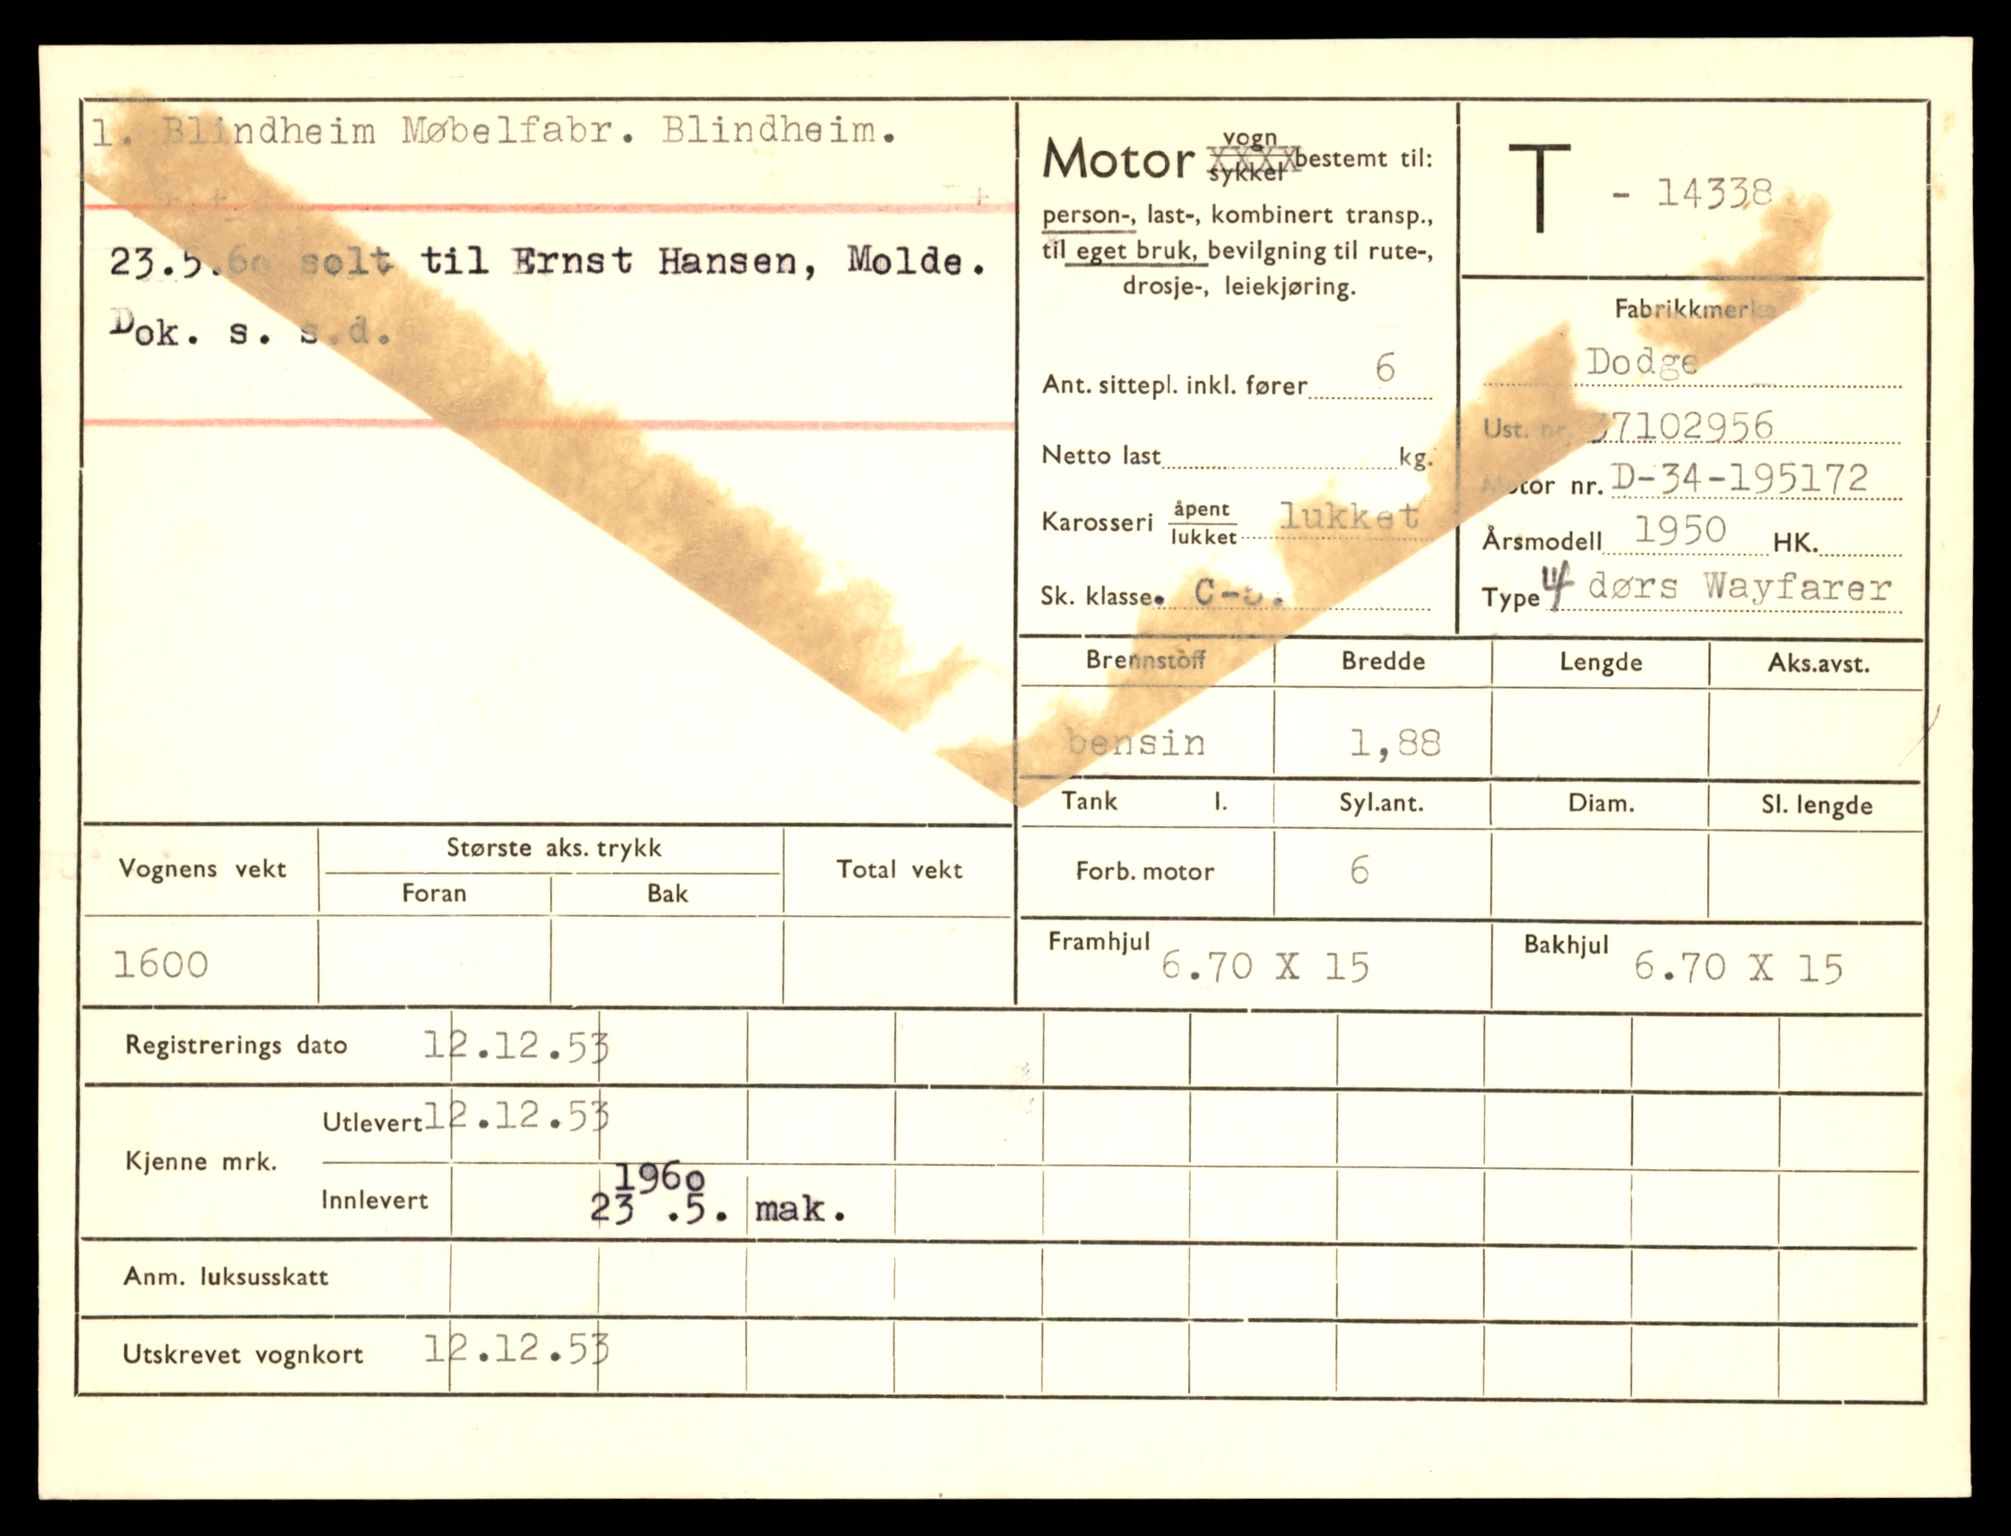 1. Blindheim Møbelfabr. Blindheim.
23.5.60 solt til Ernst Hansen, Molde.
Dok. s. s.d.
Motor vogn sykkel bestemt til:
person-, last-, kombinert transp.,
til eget bruk, bevilgning til rute-,
drosje-, leiekjøring.
Ant. sittepl. inkl. fører 6
Netto last kg.
Karosseri åpent lukket lukket
Sk. klasse. C-5.
T - 14338
Fabrikkmerke
Dodge
Ust. nr. 37102956
Motor nr. D-34-195172
Årsmodell 1950 HK.
Type 4 dørs Wayfarer
Brennstoff Bredde Lengde Aks.avst.
bensin 1,88
Tank l. Syl.ant. Diam. Sl. lengde
Forb. motor 6
Framhjul 6.70 X 15 Bakhjul 6.70 X 15
Vognens vekt Største aks. trykk Total vekt
Foran Bak
1600
Registrerings dato 12.12.53
Kjenne mrk. Utlevert 12.12.53
Innlevert 1960
23 .5. mak.
Anm. luksusskatt
Utskrevet vognkort 12.12.53